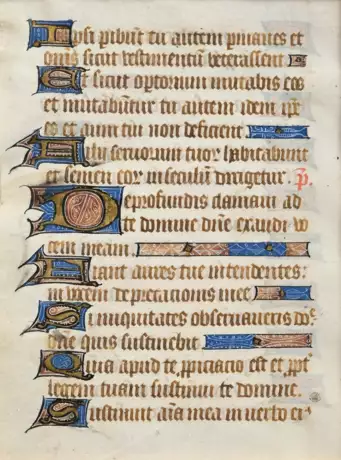 Ipsi peribut tu autem pmanes et
oms sicut vestimentu veterascent
Et sicut opertorium mutabis eos
et mutabuntur tu autem idem ipse
es et anni tui non deficient
Filii servorum tuor habitabunt
et semen eor in seculum dirigetur. Ps
De profundis clamavi ad
te domine dne exaudi vo
cem meam
Fiant aures tue intendentes:
in vocem deprecationis mee
Si iniquitates observaveris do
ne quis sustinebit
Quia apud te ppiciacio est et ppt
legem tuam sustinui te domine.
Sustinuit aia mea in verbo ei